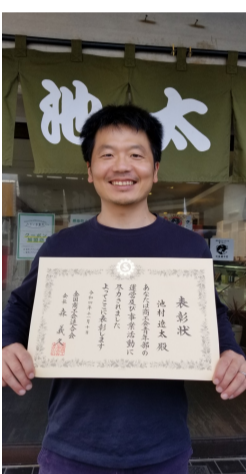 池太
表彰状
池村遼太 殿
あなたは商工会青年部の
運営及び事業活動に
尽力されました
よってここに表彰します
会長 森 義